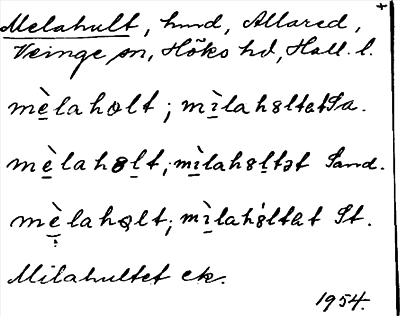 Melahult, hmd, Allared,
Veinge sn, Höks hd, Hall. l.
mè̱lahɷlt; mì̱lahɷltət Sa.
mè̱lahɷḻt; mì̱lahɷḻtət Sand.
mè̱lahɷlt; mì̱lahɷ́ltət St.
Milahultet ek.
1954.